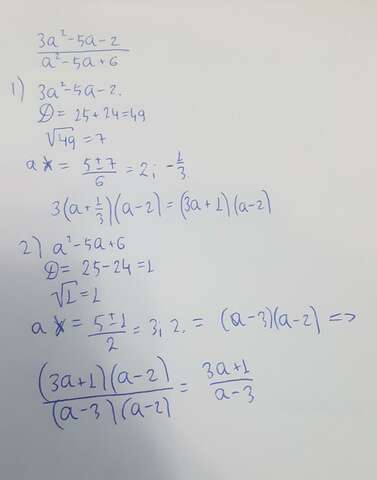 (3a²-5a-2)/(a²-5a+6)
1) 3a²-5a-2.
D = 25+24=49
√49=7
a = (5±7)/6 = 2; -1/3
3(a+1/3)(a-2)=(3a+1)(a-2)
2) a²-5a+6
D= 25-24=1
√1=1
a = (5±1)/2 = 3, 2. = (a-3)(a-2) =>
((3a+1)(a-2))/((a-3)(a-2)) = (3a+1)/(a-3)